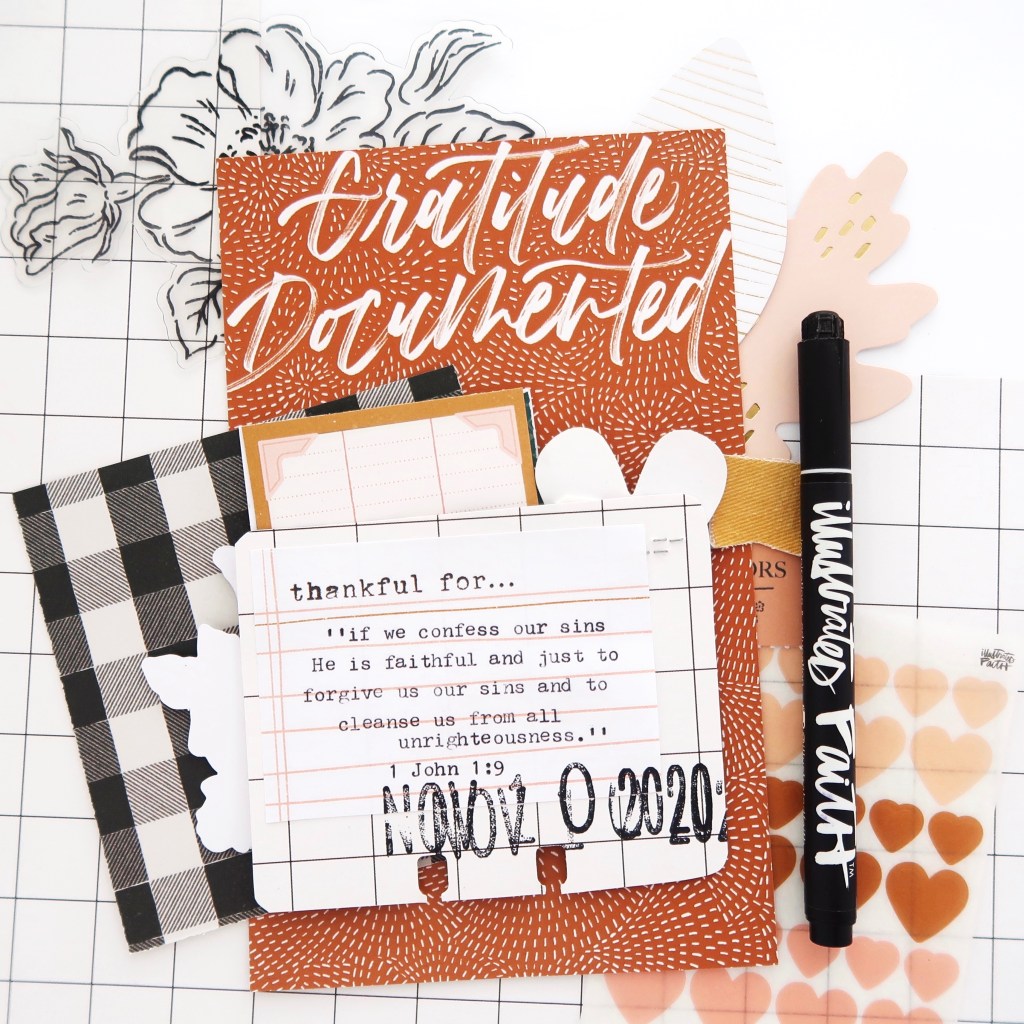 Gratitude
Documented
thankful for...
"if we confess our sins
He is faithful and just to
forgive us our sins and to
cleanse us from all
unrighteousness."
1 John 1:9
illustrated Faith™
illustrated
Faith